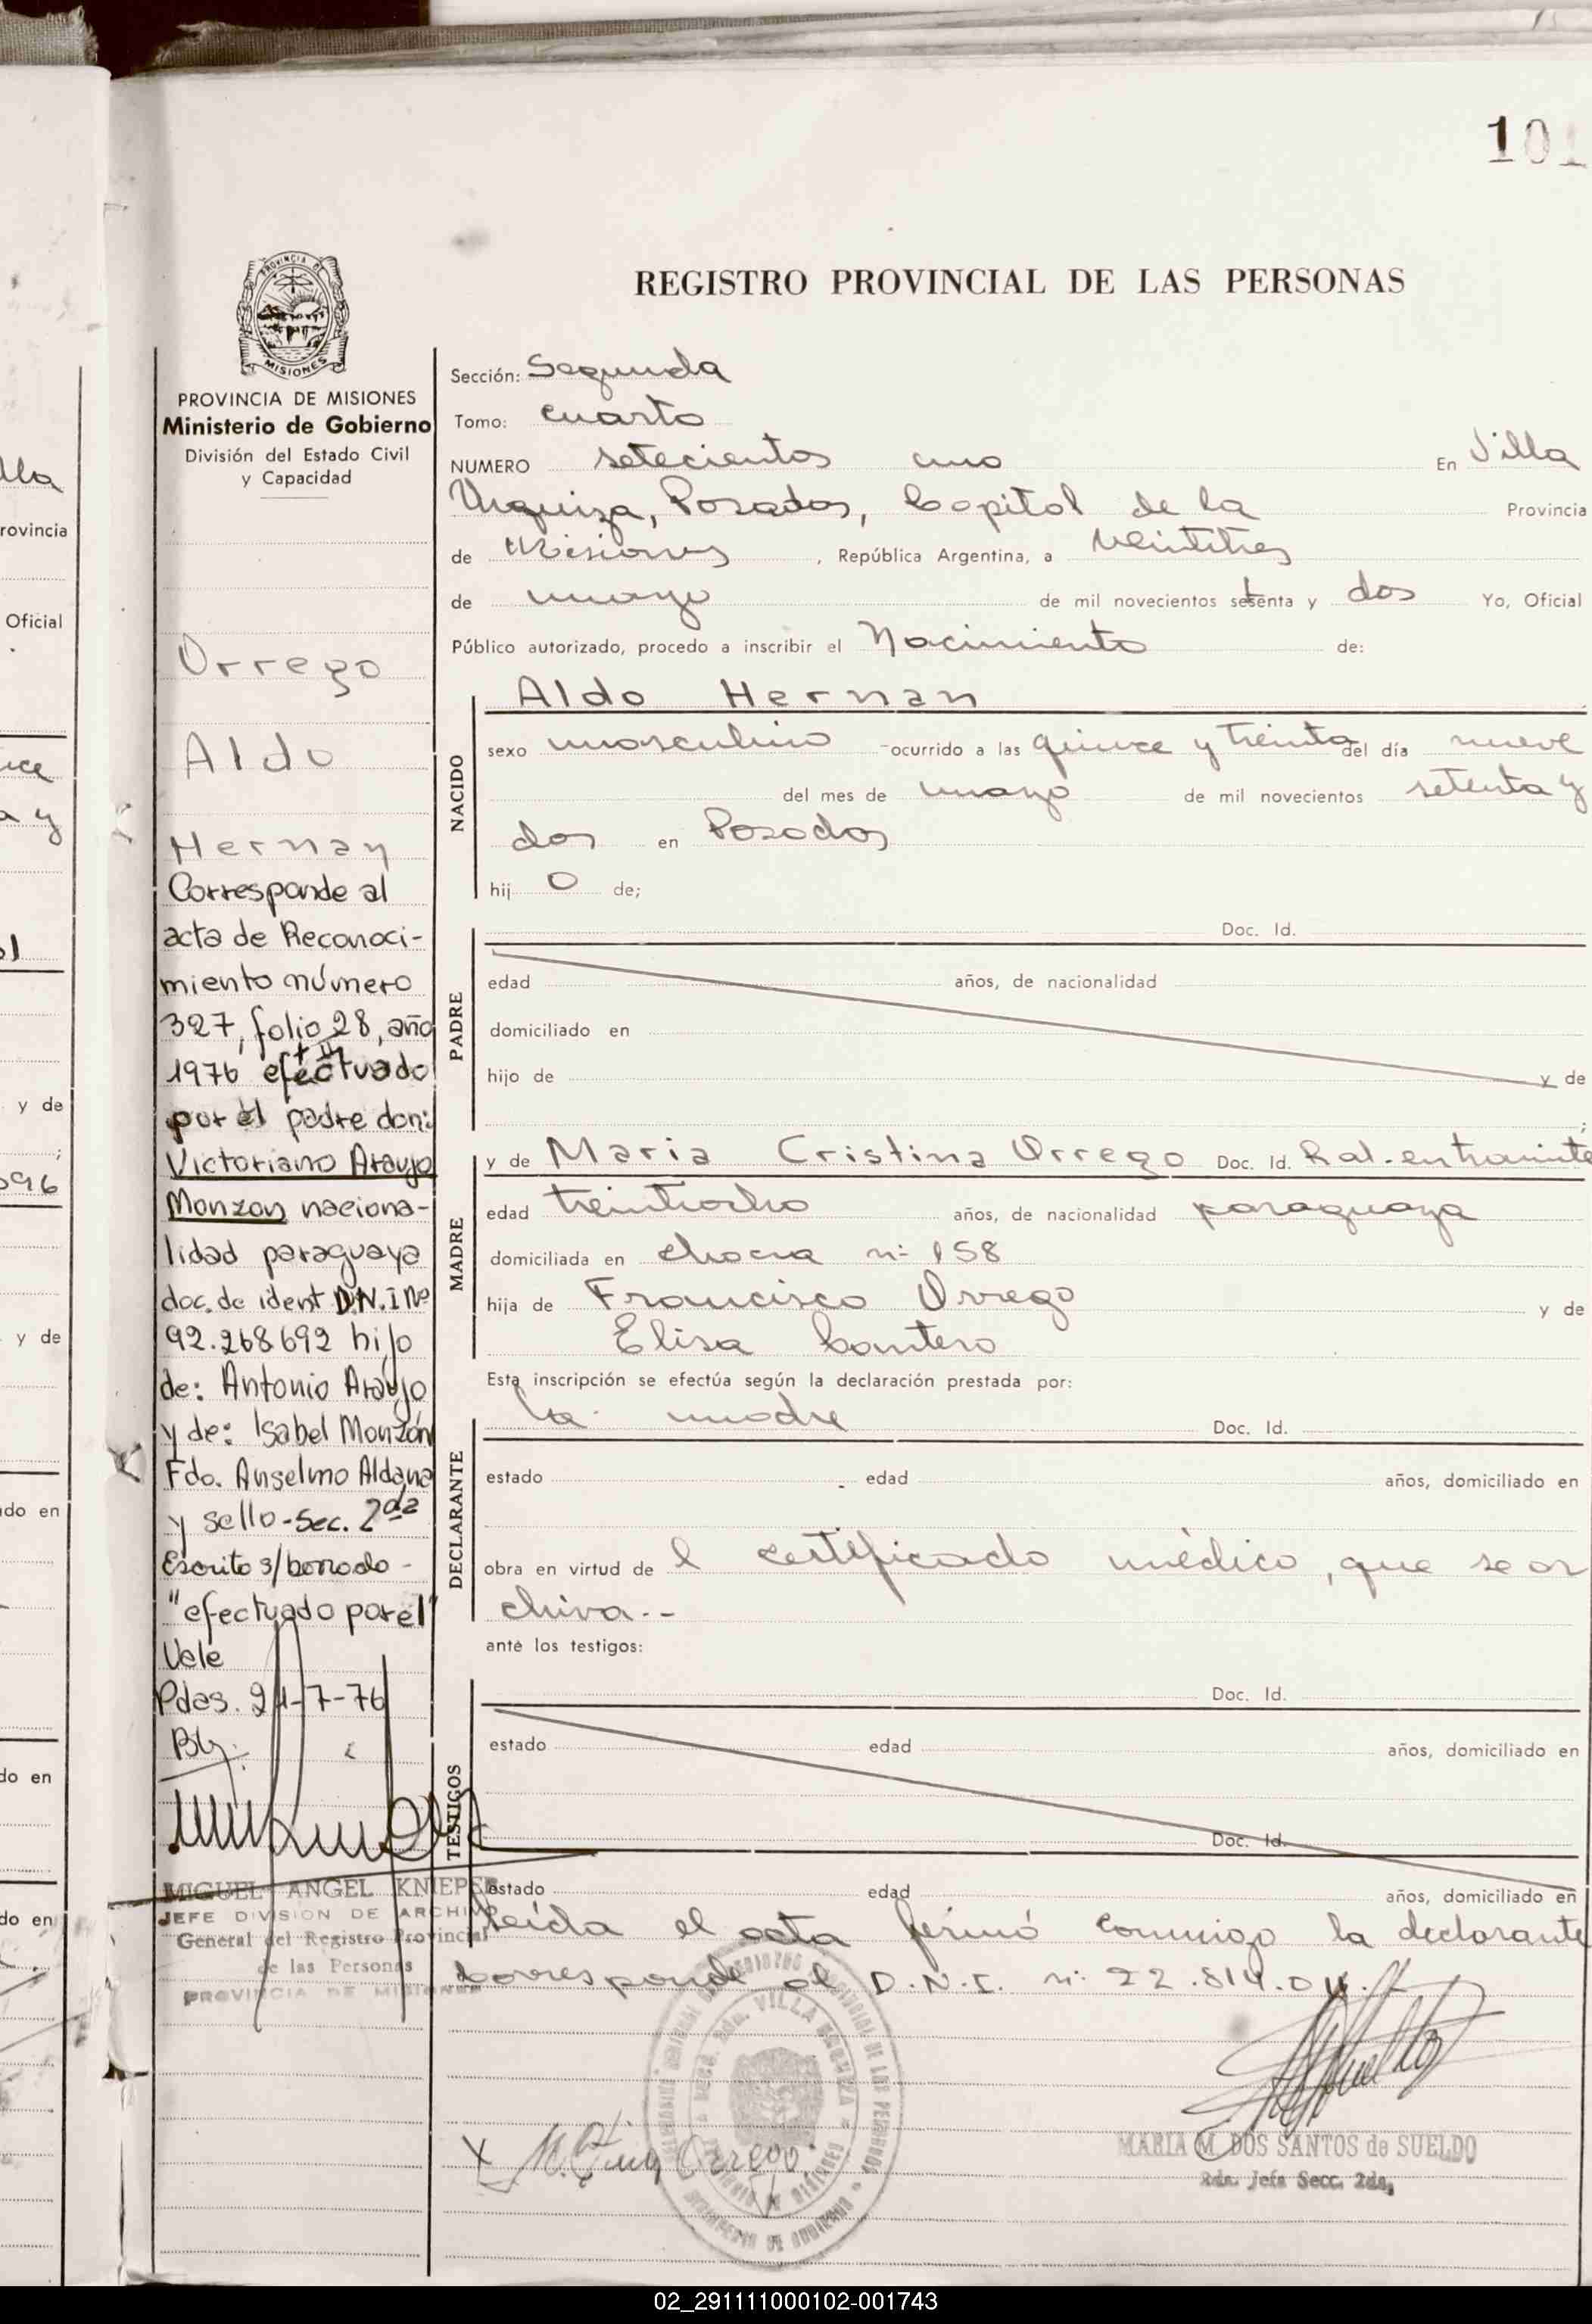 101
REGISTRO PROVINCIAL DE LAS PERSONAS
PROVINCIA DE MISIONES
Ministerio de Gobierno
División del Estado Civil
y Capacidad
Orrego
Aldo
Hernan
Corresponde al
acta de Reconoci-
miento número
327, folio 28, año
1976 efectuado
por el padre don:
Victoriano Araujo
Monzon naciona-
lidad paraguaya
doc. de ident D.N.I Nº
92.268692 hijo
de: Antonio Araujo
y de: Isabel Monzón
Fdo. Anselmo Aldana
y sello-Sec. 2da
Escrito s/borrado -
"efectuado por el"
Vale
Pdas. 21-7-76
MIGUEL ANGEL KNIEPER
JEFE DIVISION DE ARCHIVO
General del Registro Provincial
de las Personas
PROVINCIA DE MISIONES
Sección: Segunda
Tomo: cuarto
NUMERO setecientos uno En Villa
Urquiza, Posadas, Capital de la Provincia
de Misiones, República Argentina, a veintitres
de mayo de mil novecientos setenta y dos Yo, Oficial
Público autorizado, procedo a inscribir el Nacimiento de:
NACIDO
Aldo Hernan
sexo masculino ocurrido a las quince y treinta del día nueve
del mes de mayo de mil novecientos setenta y
dos en Posadas
hij o de;
PADRE
Doc. Id.
edad años, de nacionalidad
domiciliado en
hijo de y de
;
MADRE
y de Maria Cristina Orrego Doc. Id. Ral. en tramite
edad treintiocho años, de nacionalidad paraguaya
domiciliada en chacra nº 158
hija de Francisco Orrego y de
Elisa Cantero
Esta inscripción se efectúa según la declaración prestada por:
DECLARANTE
la madre Doc. Id.
estado edad años, domiciliado en
obra en virtud de l certificado médico, que se ar
chiva.--
ante los testigos:
TESTIGOS
Doc. Id.
estado edad años, domiciliado en
Doc. Id.
estado edad años, domiciliado en
Leída el acta firmó conmigo la declarante
Corresponde al D.N.I. nº 22.814.
MARIA M. DOS SANTOS de SUELDO
Jefa Secc. 2da.
02_291111000102-001743